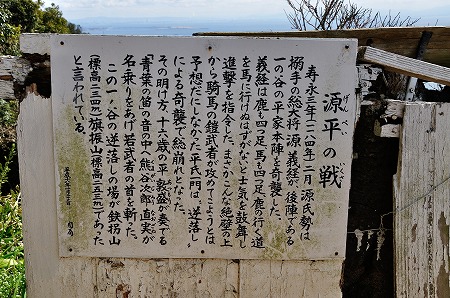 源平の戦
げんぺい
いくさ
寿永三年(一一八四年)二月源氏勢は
搦手の総大将源義経が、後陣である
一の谷の平家本陣を奇襲した。
義経は鹿も四つ足、馬も四つ足、鹿の行く道
を馬に行けぬはずがないと、士気を鼓舞し
進撃を指令した。まさかこんな絶壁の上
から騎馬の鎧武者が攻めてこようとは
予想だにしなかった平氏一門は、"逆落し"
による奇襲で総崩れとなった。
その明け方、十六歳の平敦盛が奏でる
「青葉の笛の音の中、熊谷次郎直実が
名乗りをあげ若武者の首を斬った。
この一ノ谷の逆落しの場が鉄拐山
(標高二三四m)旗振山(標高二五三m)であった
と言われている。